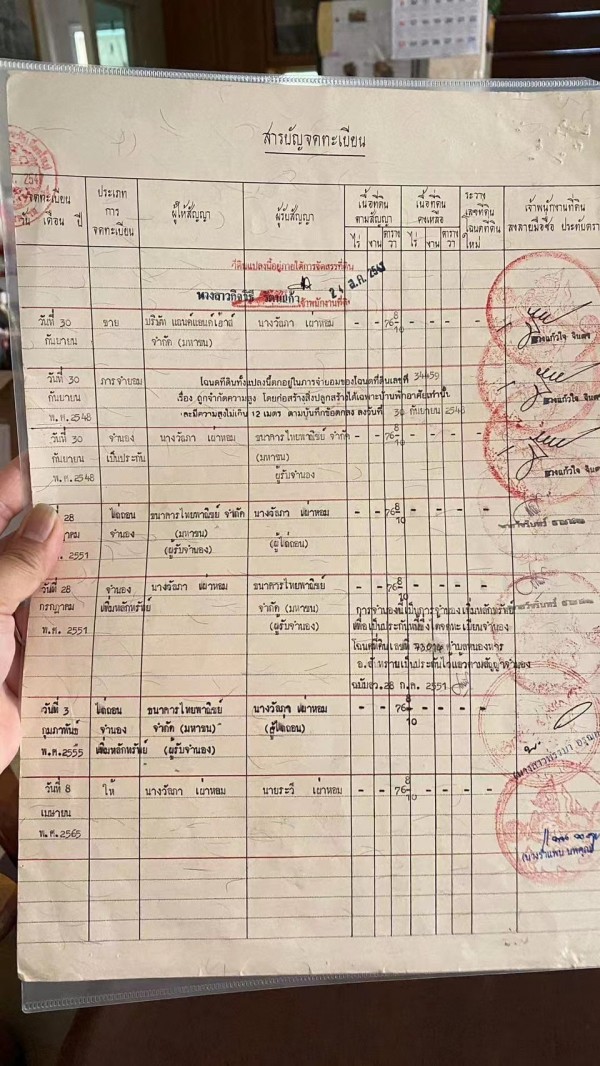 สารบัญจดทะเบียน
จดทะเบียน
วัน เดือน ปี
ประเภท
การ
จดทะเบียน
ผู้ให้สัญญา
ผู้รับสัญญา
เนื้อที่ดิน
ตามสัญญา
ไร่ งาน ตาราง วา
เนื้อที่ดิน
คงเหลือ
ไร่ งาน ตาราง วา
ระวาง
เลขที่ดิน
โฉนดที่ดิน
ใหม่
เจ้าพนักงานที่ดิน
ลงลายมือชื่อ ประทับตรา
ที่ดินแปลงนี้อยู่ภายใต้การจัดสรรที่ดิน
เจ้าพนักงานที่ดิน
วันที่ 30 ขาย บริษัท แลนด์แอนด์เฮ้าส์ นางวัณภา เผ่าหอม - - 76 8/10 - - - -
กันยายน จำกัด (มหาชน)
วันที่ 30 ภารจำยอม โฉนดที่ดินทั้งแปลงนี้ตกอยู่ในภารจำยอมของโฉนดที่ดินเลขที่ 34459
กันยายน เรื่อง ถูกจำกัดความสูง โดยก่อสร้างสิ่งปลูกสร้างได้เฉพาะบ้านพักอาศัยเท่านั้น
พ.ศ.2548 และมีความสูงไม่เกิน 12 เมตร ตามบันทึกข้อตกลง ลงวันที่ 30 กันยายน 2548
วันที่ 30 จำนอง นางวัณภา เผ่าหอม ธนาคารไทยพาณิชย์ จำกัด - - 76 8/10 - - - -
กันยายน เป็นประกัน (มหาชน)
พ.ศ.2548 ผู้รับจำนอง
28 ไถ่ถอน ธนาคารไทยพาณิชย์ จำกัด นางวัณภา เผ่าหอม - - 76 8/10 - - - -
จำนอง (มหาชน) (ผู้ไถ่ถอน)
2551 (ผู้รับจำนอง)
วันที่ 28 จำนอง นางวัณภา เผ่าหอม ธนาคารไทยพาณิชย์ - - 76 8/10 - - - -
กรกฎาคม เพิ่มหลักทรัพย์ จำกัด (มหาชน) การจำนองนี้เป็นการจำนองเพิ่มหลักทรัพย์
พ.ศ. 2551 (ผู้รับจำนอง) เพื่อเป็นประกันหนี้ซึ่งได้จดทะเบียนจำนอง
โฉนดที่ดินเลขที่
ฉบับลว.28 ก.ค. 2551
วันที่ 3 ไถ่ถอน ธนาคารไทยพาณิชย์ นางวัณภา เผ่าหอม - - 76 8/10 - - - -
กุมภาพันธ์ จำนอง จำกัด (มหาชน) (ผู้ไถ่ถอน)
พ.ศ.2555 เพิ่มหลักทรัพย์ (ผู้รับจำนอง)
วันที่ 8 ให้ นางวัณภา เผ่าหอม นายระวี เผ่าหอม - - 76 8/10 - - - -
เมษายน
พ.ศ.2565